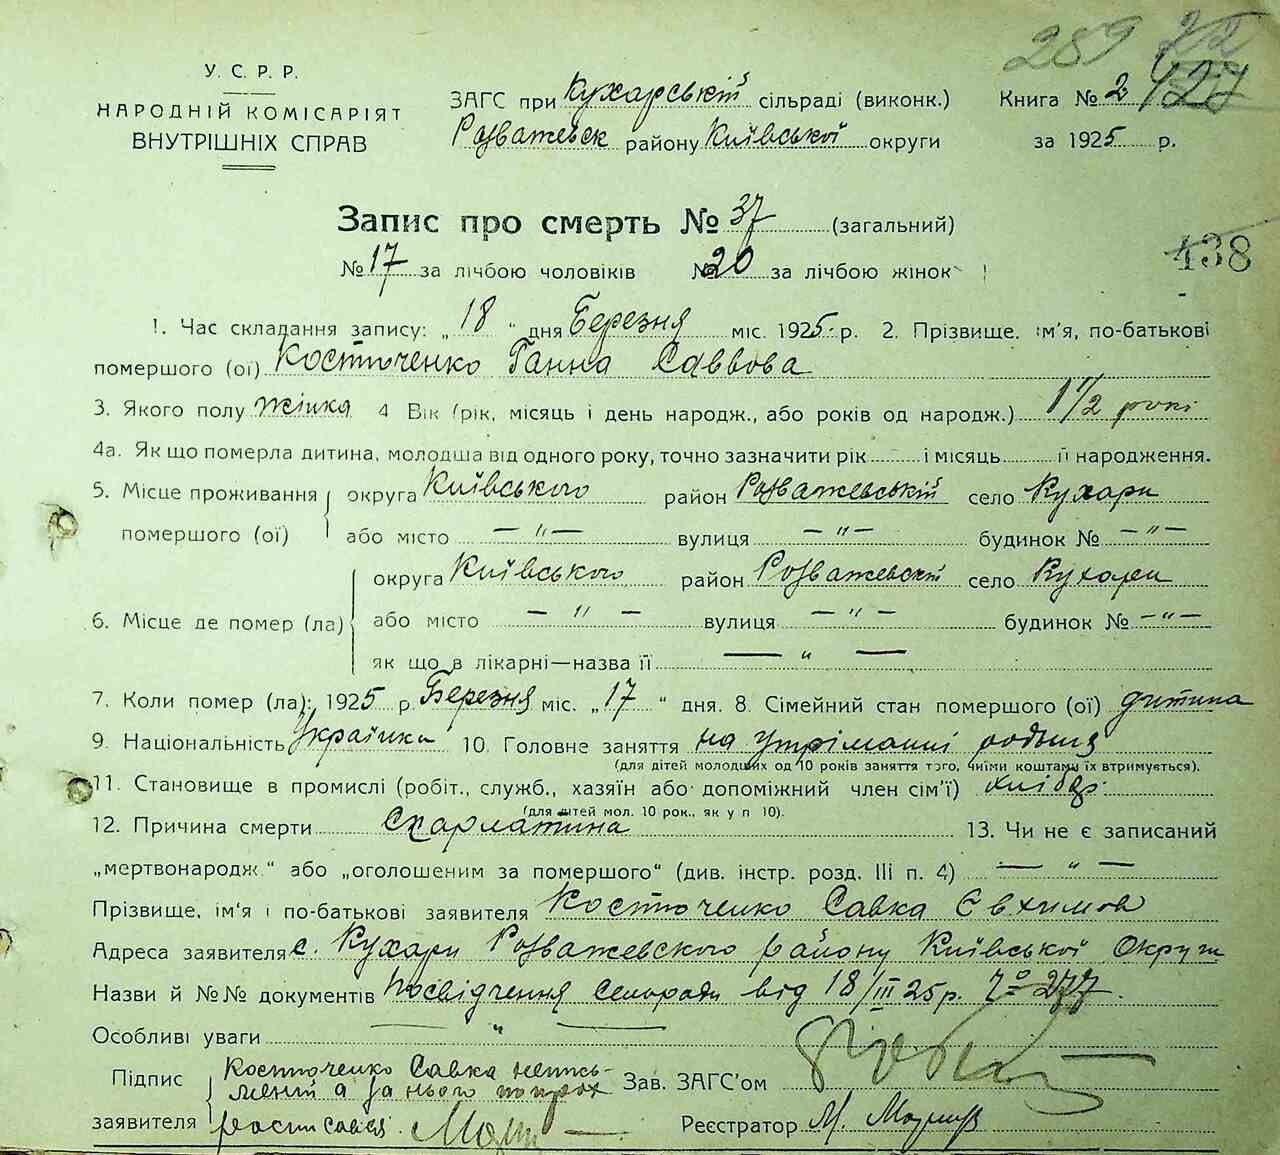 289 22
127
У. С. Р. Р.
НАРОДНІЙ КОМІСАРІЯТ
ВНУТРІШНІХ СПРАВ
ЗАГС при Кухарській сільраді (виконк.) Книга № 2
Розважевск району Київської округи за 1925 р.
Запис про смерть № 37 (загальний)
№ 17 за лічбою чоловіків № 20 за лічбою жінок
438
1. Час складання запису: „18“ дня Березня міс. 1925 р. 2. Прізвище, ім'я, по-батькові
помершого (ої) Костюченко Ганна Саввова
3. Якого полу жінка 4 Вік (рік, місяць і день народж., або років од народж.) 1 1/2 роки
4а. Як що померла дитина, молодша від одного року, точно зазначити рік і місяць її народження.
5. Місце проживання округа Київського район Розважевській село Кухари
помершого (ої) або місто — " — вулиця — " — будинок № — " —
округа Київського район Розважевскій село Кухари
6. Місце де помер (ла) або місто — " — вулиця — " — будинок № — " —
як що в лікарні—назва її — " —
7. Коли помер (ла): 1925 р. Березня міс. „17“ дня. 8. Сімейний стан помершого (ої) дитина
9. Національність Українка 10. Головне заняття на утріманні
(для дітей молодших од 10 років заняття того, чиїми коштами їх втримується).
11. Становище в промислі (робіт., служб., хазяїн або допоміжний член сім'ї)
(для дітей мол. 10 рок., як у п 10).
12. Причина смерти Скарлатина 13. Чи не є записаний
„мертвонародж.“ або „оголошеним за помершого“ (див. інстр. розд. III п. 4) — " —
Прізвище, ім'я і по-батькові заявителя Костюченко Савка Євхимов
Адреса заявителя с. Кухари Розважевского району Київської Округи
Назви й №№ документів Посвідчення Сельради від 18/III 25р. № 277.
Особливі уваги — " —
Підпис Костюченко Савка непись-
менний а за нього
заявителя росписався
Зав. ЗАГС'ом
Реєстратор М.